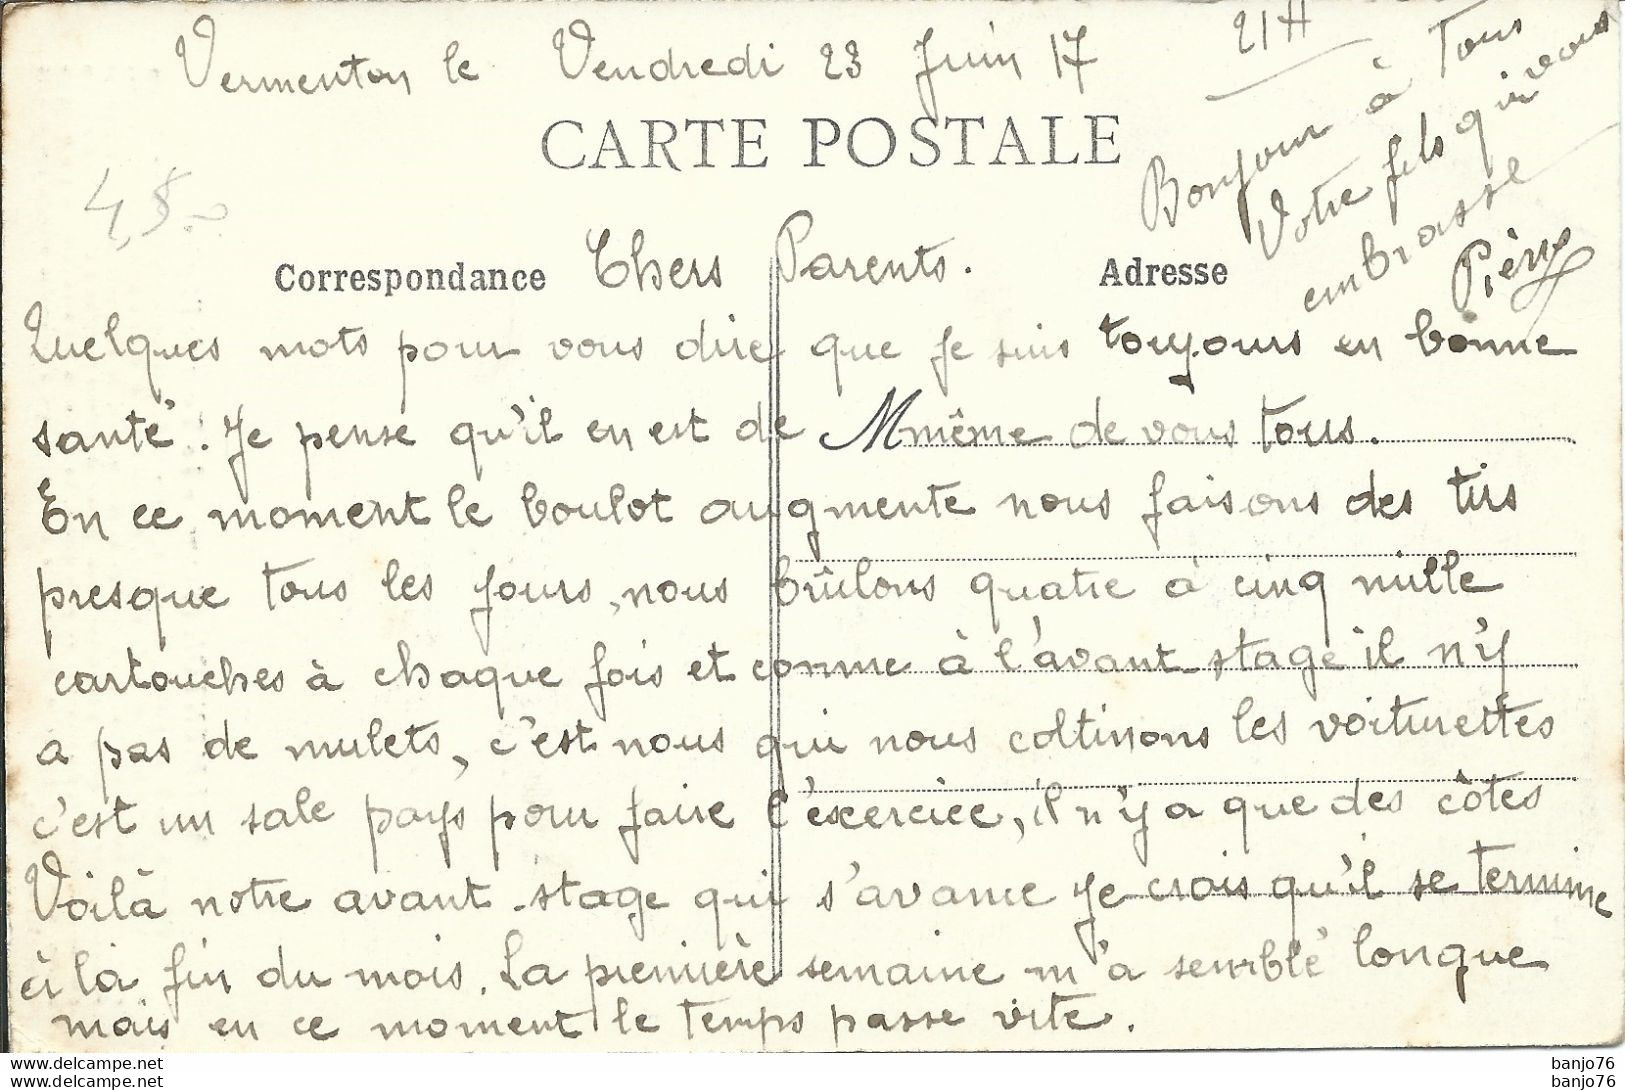 Vermenton le Vendredi 23 Juin 17
21H
CARTE POSTALE
4,50
Correspondance
Adresse
Chers Parents.
Quelques mots pour vous dire que je suis toujours en bonne
santé. Je pense qu'il en est de même de vous tous.
En ce moment le boulot augmente nous faisons des tirs
presque tous les jours, nous brûlons quatre à cinq mille
cartouches à chaque fois et comme à l'avant-stage il n'y
a pas de mulets, c'est nous qui nous coltinons les voiturettes
c'est un sale pays pour faire l'exercice, il n'y a que des côtes
Voilà notre avant-stage qui s'avance je crois qu'il se termine
à la fin du mois. La première semaine m'a semblé longue
mais en ce moment le temps passe vite.
Bonjour à Tous
Votre fils qui vous
embrasse
banjo76
banjo76